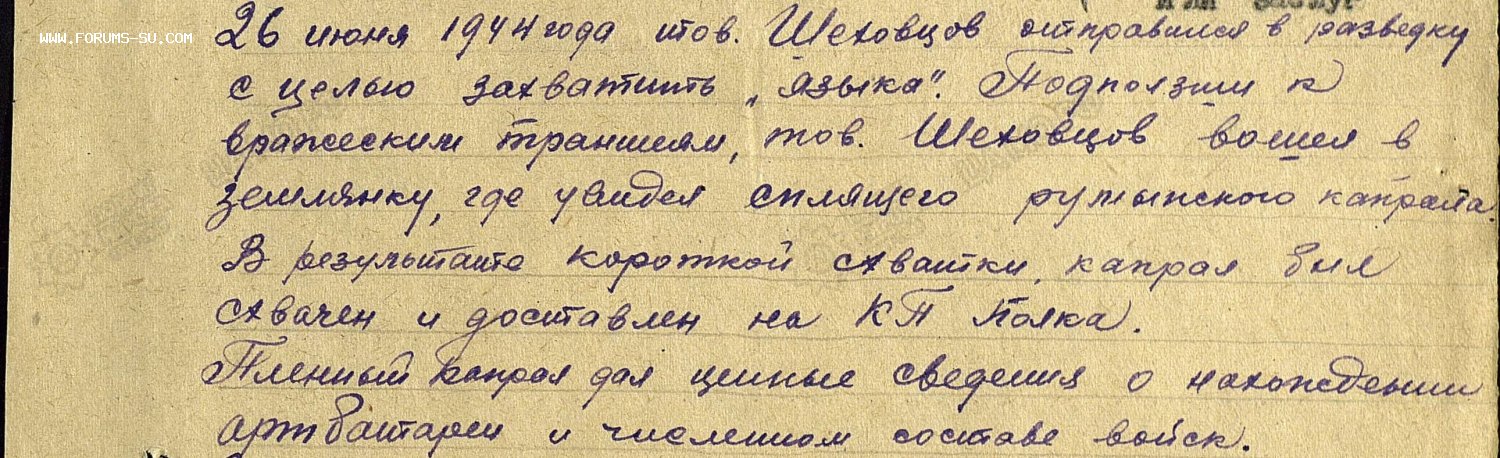 или заслуг
WWW.FORUMS-SU.COM
26 июня 1944 года тов. Шеховцов отправился в разведку
с целью захватить „языка". Подползши к
вражеским траншеям, тов. Шеховцов вошел в
землянку, где увидел спящего румынского капрала.
В результате короткой схватки, капрал был
схвачен и доставлен на КП Полка.
Пленный капрал дал ценные сведения о нахождении
артбатареи и численном составе войск.